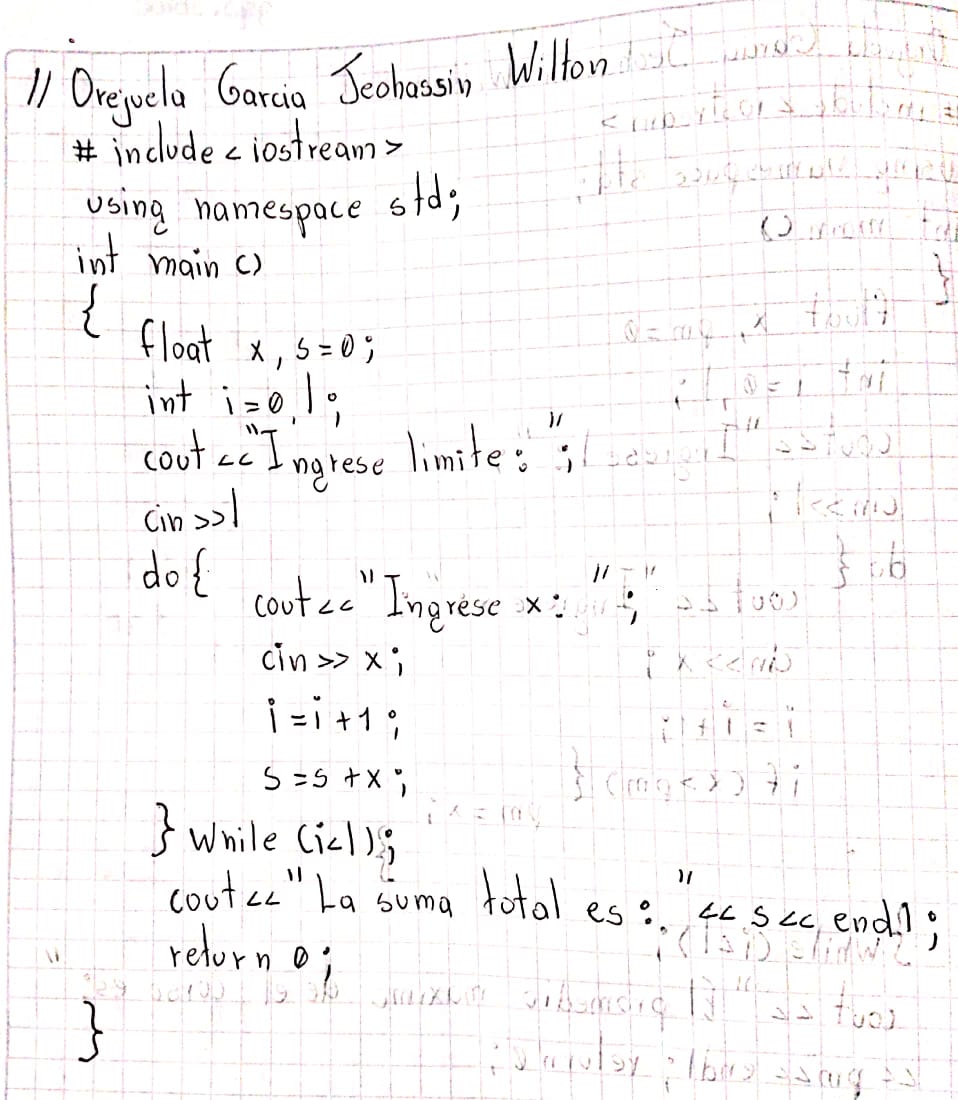 // Orejuela Garcia Jeohassin Wilton
# include < iostream >
using namespace std;
int main ()
{ float x, s=0;
int i=0, l;
cout << "Ingrese limite: ";
cin >> l
do {
cout << "Ingrese x: ";
cin >> x;
i = i + 1;
s = s + x;
} While (i<l);
cout << "La suma total es: " << s << endl;
return 0;
}